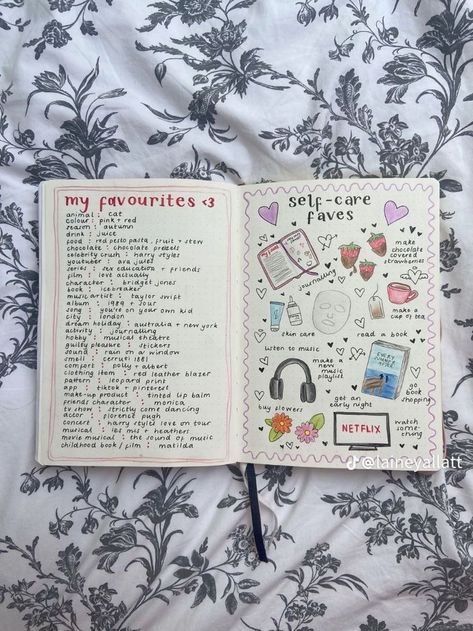 my favourites <3
animal : cat
colour : pink + red
season : autumn
drink : juice
food : red pesto pasta, fruit + stew
chocolate : chocolate pretzels
celebrity crush : harry styles
youtuber : ava jules
series : sex education + friends
film : love actually
character : bridget jones
book : icebreaker
music artist : taylor swift
album : 1989 + sour
song : you're on your own kid
city : london
dream holiday : australia + new york
activity : journalling
hobby : musical theatre
guilty pleasure : stickers
sound : rain on a window
smell : cerruti 1881
comfort : polly + albert
clothing item : red leather blazer
pattern : leopard print
app : tiktok + pinterest
make-up product : tinted lip balm
friends character : monica
tv show : strictly come dancing
actor : florence pugh
concert : harry styles love on tour
musical : les mis + heathers
movie musical : the sound of music
childhood book / film : matilda
self-care
faves
journalling
make
chocolate
covered
strawberries
skin care
make a
cup of tea
read a book
listen to music
make a
new music
playlist
go
book
shopping
get an
early night
buy flowers
NETFLIX
watch
some-
thing
@laineyallatt